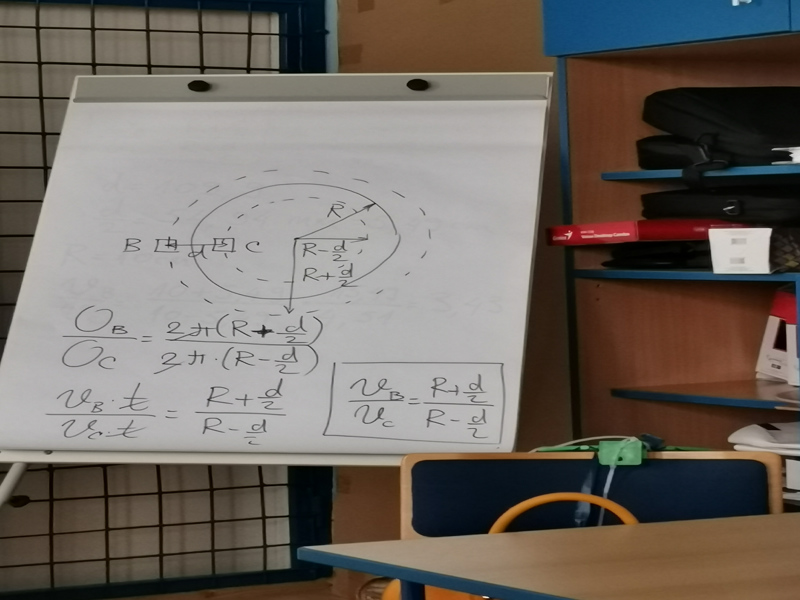 R
B d C
R - d/2
R + d/2
O_B / O_C = 2π(R + d/2) / 2π·(R - d/2)
v_B·t / v_C·t = R + d/2 / R - d/2
v_B / v_C = R + d/2 / R - d/2